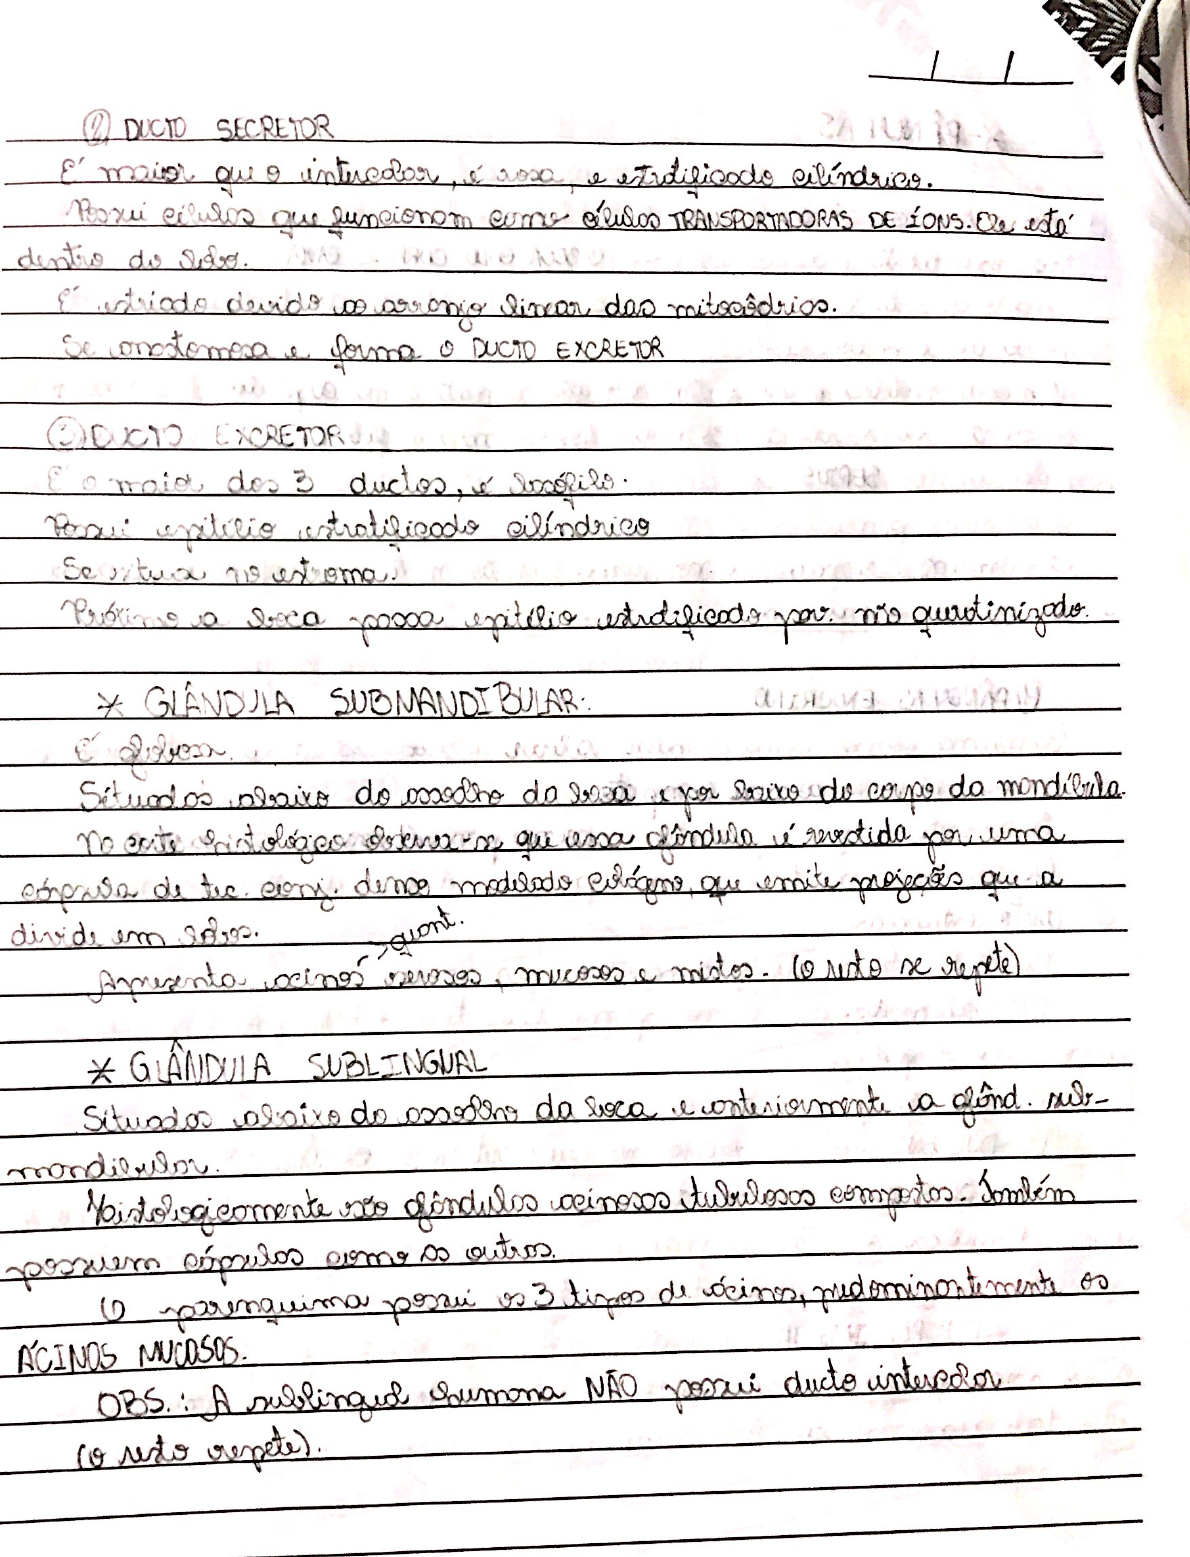 ② DUCTO SECRETOR
É maior que o intercalar, é rosa, e estratificado cilíndrico.
Possui células que funcionam como células TRANSPORTADORAS DE ÍONS. Ele está
dentro do lobo.
É estriado devido ao arranjo linear das mitocôdrias.
Se anastomosa e forma o DUCTO EXCRETOR
③ DUCTO EXCRETOR
É o maior dos 3 ductos, é basófilo.
Possui epitélio estratificado cilíndrico
Se situa no estroma.
Próximo a boca possa epitélio estratificado pav. não queratinizado.
* GLÂNDULA SUBMANDIBULAR:
É globosa.
Situados abaixo do assoalho da boca e por baixo do corpo da mandíbula.
No corte histológico observa-se que essa glândula é revestida por uma
cápsula de tec. conj. denso modelado colágeno, que emite projeções que a
divide em lobos.
→ quant.
Apresenta ácinos serosos, mucosos e mistos. (o resto se repete)
* GLÂNDULA SUBLINGUAL
Situados abaixo do assoalho da boca e anteriormente a glând. sub-
mandibular.
Histologicamente são glândulas acinosas tubulosas compostas. Também
possuem cápsulas como as outras.
O parenquima possui os 3 tipos de ácinos, predominantemente os
ÁCINOS MUCOSOS.
OBS.: A sublingual humana NÃO possui ducto intercalar
(o resto repete).